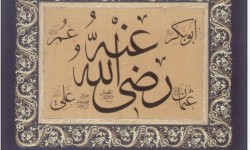 ابوبكر
عمر
رضى الله عنه
عثمان
على